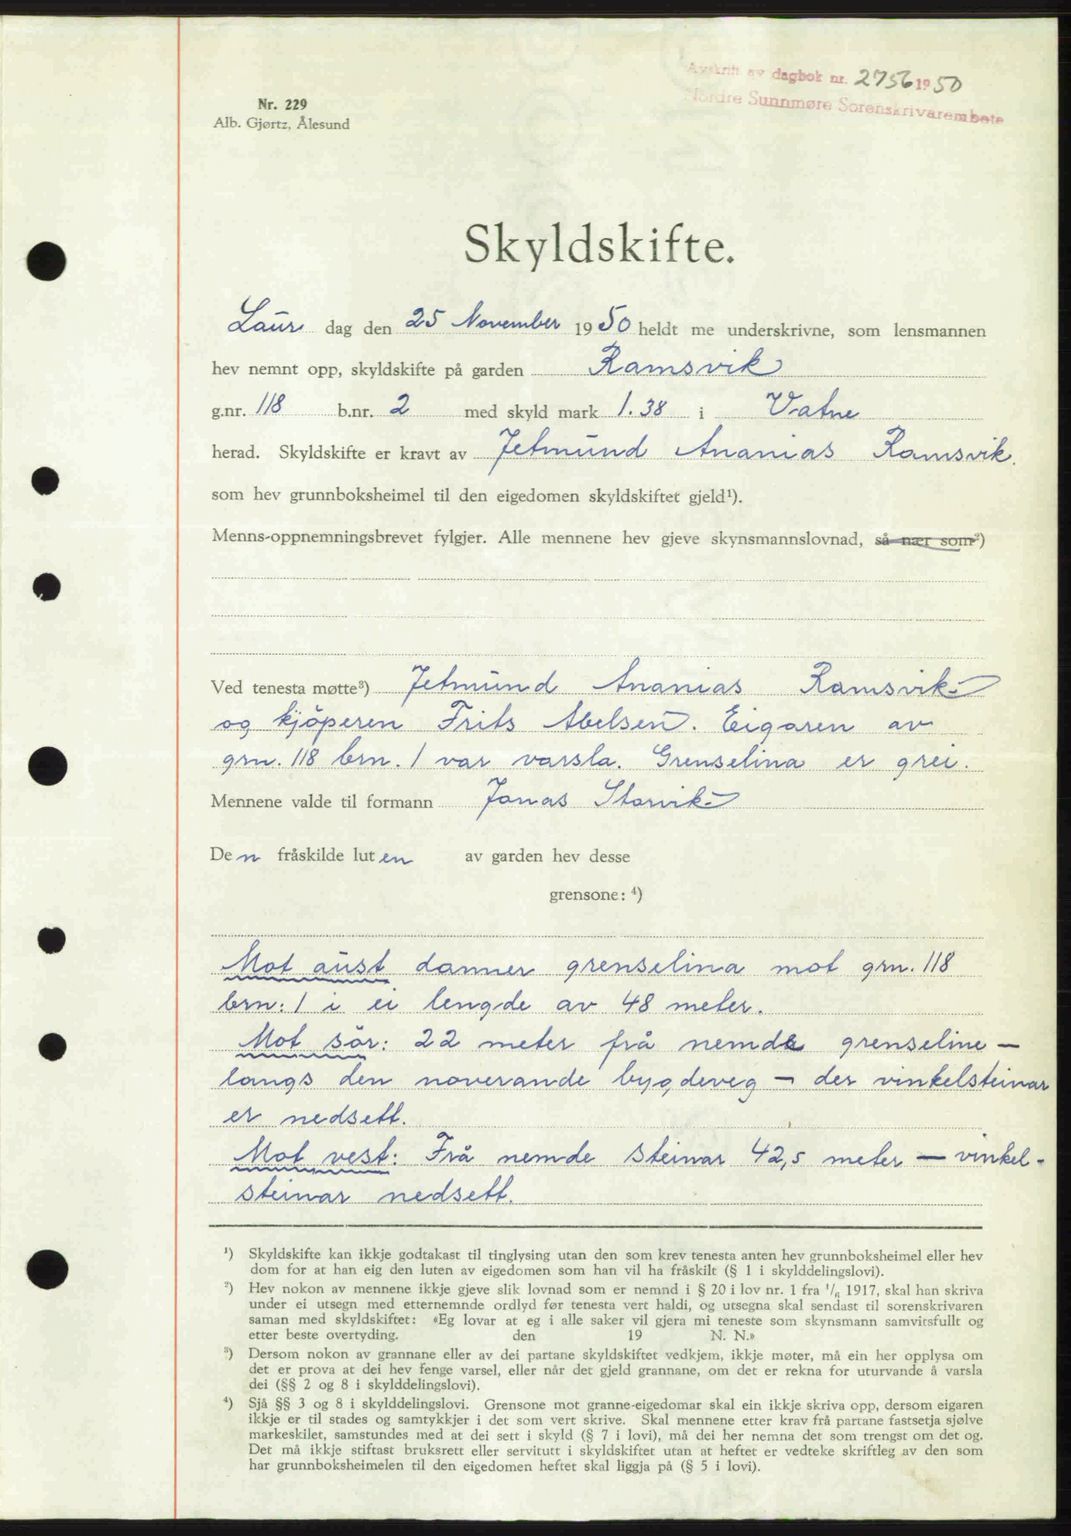 Avskrift av dagbok nr. 2756 1950
Nordre Sunnmøre Sorenskrivarembete
Nr. 229
Alb. Gjørtz, Ålesund
Skyldskifte.
Laur dag den 25 November 1950 heldt me underskrivne, som lensmannen
hev nemnt opp, skyldskifte på garden Ramsvik
g.nr. 118 b.nr. 2 med skyld mark 1.38 i Vatne
herad. Skyldskifte er kravt av Jetmund Ananias Ramsvik.
som hev grunnboksheimel til den eigedomen skyldskiftet gjeld¹).
Menns-oppnemningsbrevet fylgjer. Alle mennene hev gjeve skynsmannslovnad, så nær som²)
Ved tenesta møtte³) Jetmund Ananias Ramsvik
og kjöperen Frits Abelsen. Eigaren av
grn. 118 brn. 1 var varsla. Grenselina er grei.
Mennene valde til formann Jonas Storvik
Den fråskilde luten av garden hev desse
grensone: ⁴)
Mot aust danner grenselina mot grn. 118
brn: 1 i ei lengde av 48 meter.
Mot sör: 22 meter frå nemde grenseline —
langs den noverande bygdeveg — der vinkelsteinar
er nedsett.
Mot vest: Frå nemde steinar 42,5 meter — vinkel-
steinar nedsett.
¹) Skyldskifte kan ikkje godtakast til tinglysing utan den som krev tenesta anten hev grunnboksheimel eller hev
dom for at han eig den luten av eigedomen som han vil ha fråskilt (§ 1 i skylddelingslovi).
²) Hev nokon av mennene ikkje gjeve slik lovnad som er nemnd i § 20 i lov nr. 1 fra ¹/₆ 1917, skal han skriva
under ei utsegn med etternemnde ordlyd før tenesta vert haldi, og utsegna skal sendast til sorenskrivaren
saman med skyldskiftet: «Eg lovar at eg i alle saker vil gjera mi teneste som skynsmann samvitsfullt og
etter beste overtyding. den 19 N. N.»
³) Dersom nokon av grannane eller av dei partane skyldskiftet vedkjem, ikkje møter, må ein her opplysa om
det er prova at dei hev fenge varsel, eller når det gjeld grannane, om det er rekna for uturvande å varsla
dei (§§ 2 og 8 i skylddelingslovi).
⁴) Sjå §§ 3 og 8 i skylddelingslovi. Grensone mot granne-eigedomar skal ein ikkje skriva opp, dersom eigaren
ikkje er til stades og samtykkjer i det som vert skrive. Skal mennene etter krav frå partane fastsetja sjølve
markeskilet, samstundes med at dei sett i skyld (§ 7 i lovi), må dei her nemna det som trengst om det og.
Det må ikkje stiftast bruksrett eller servitutt i skyldskiftet utan at heftet er vedteke skriftleg av den som
har grunnboksheimelen til den eigedomen heftet skal liggja på (§ 5 i lovi).